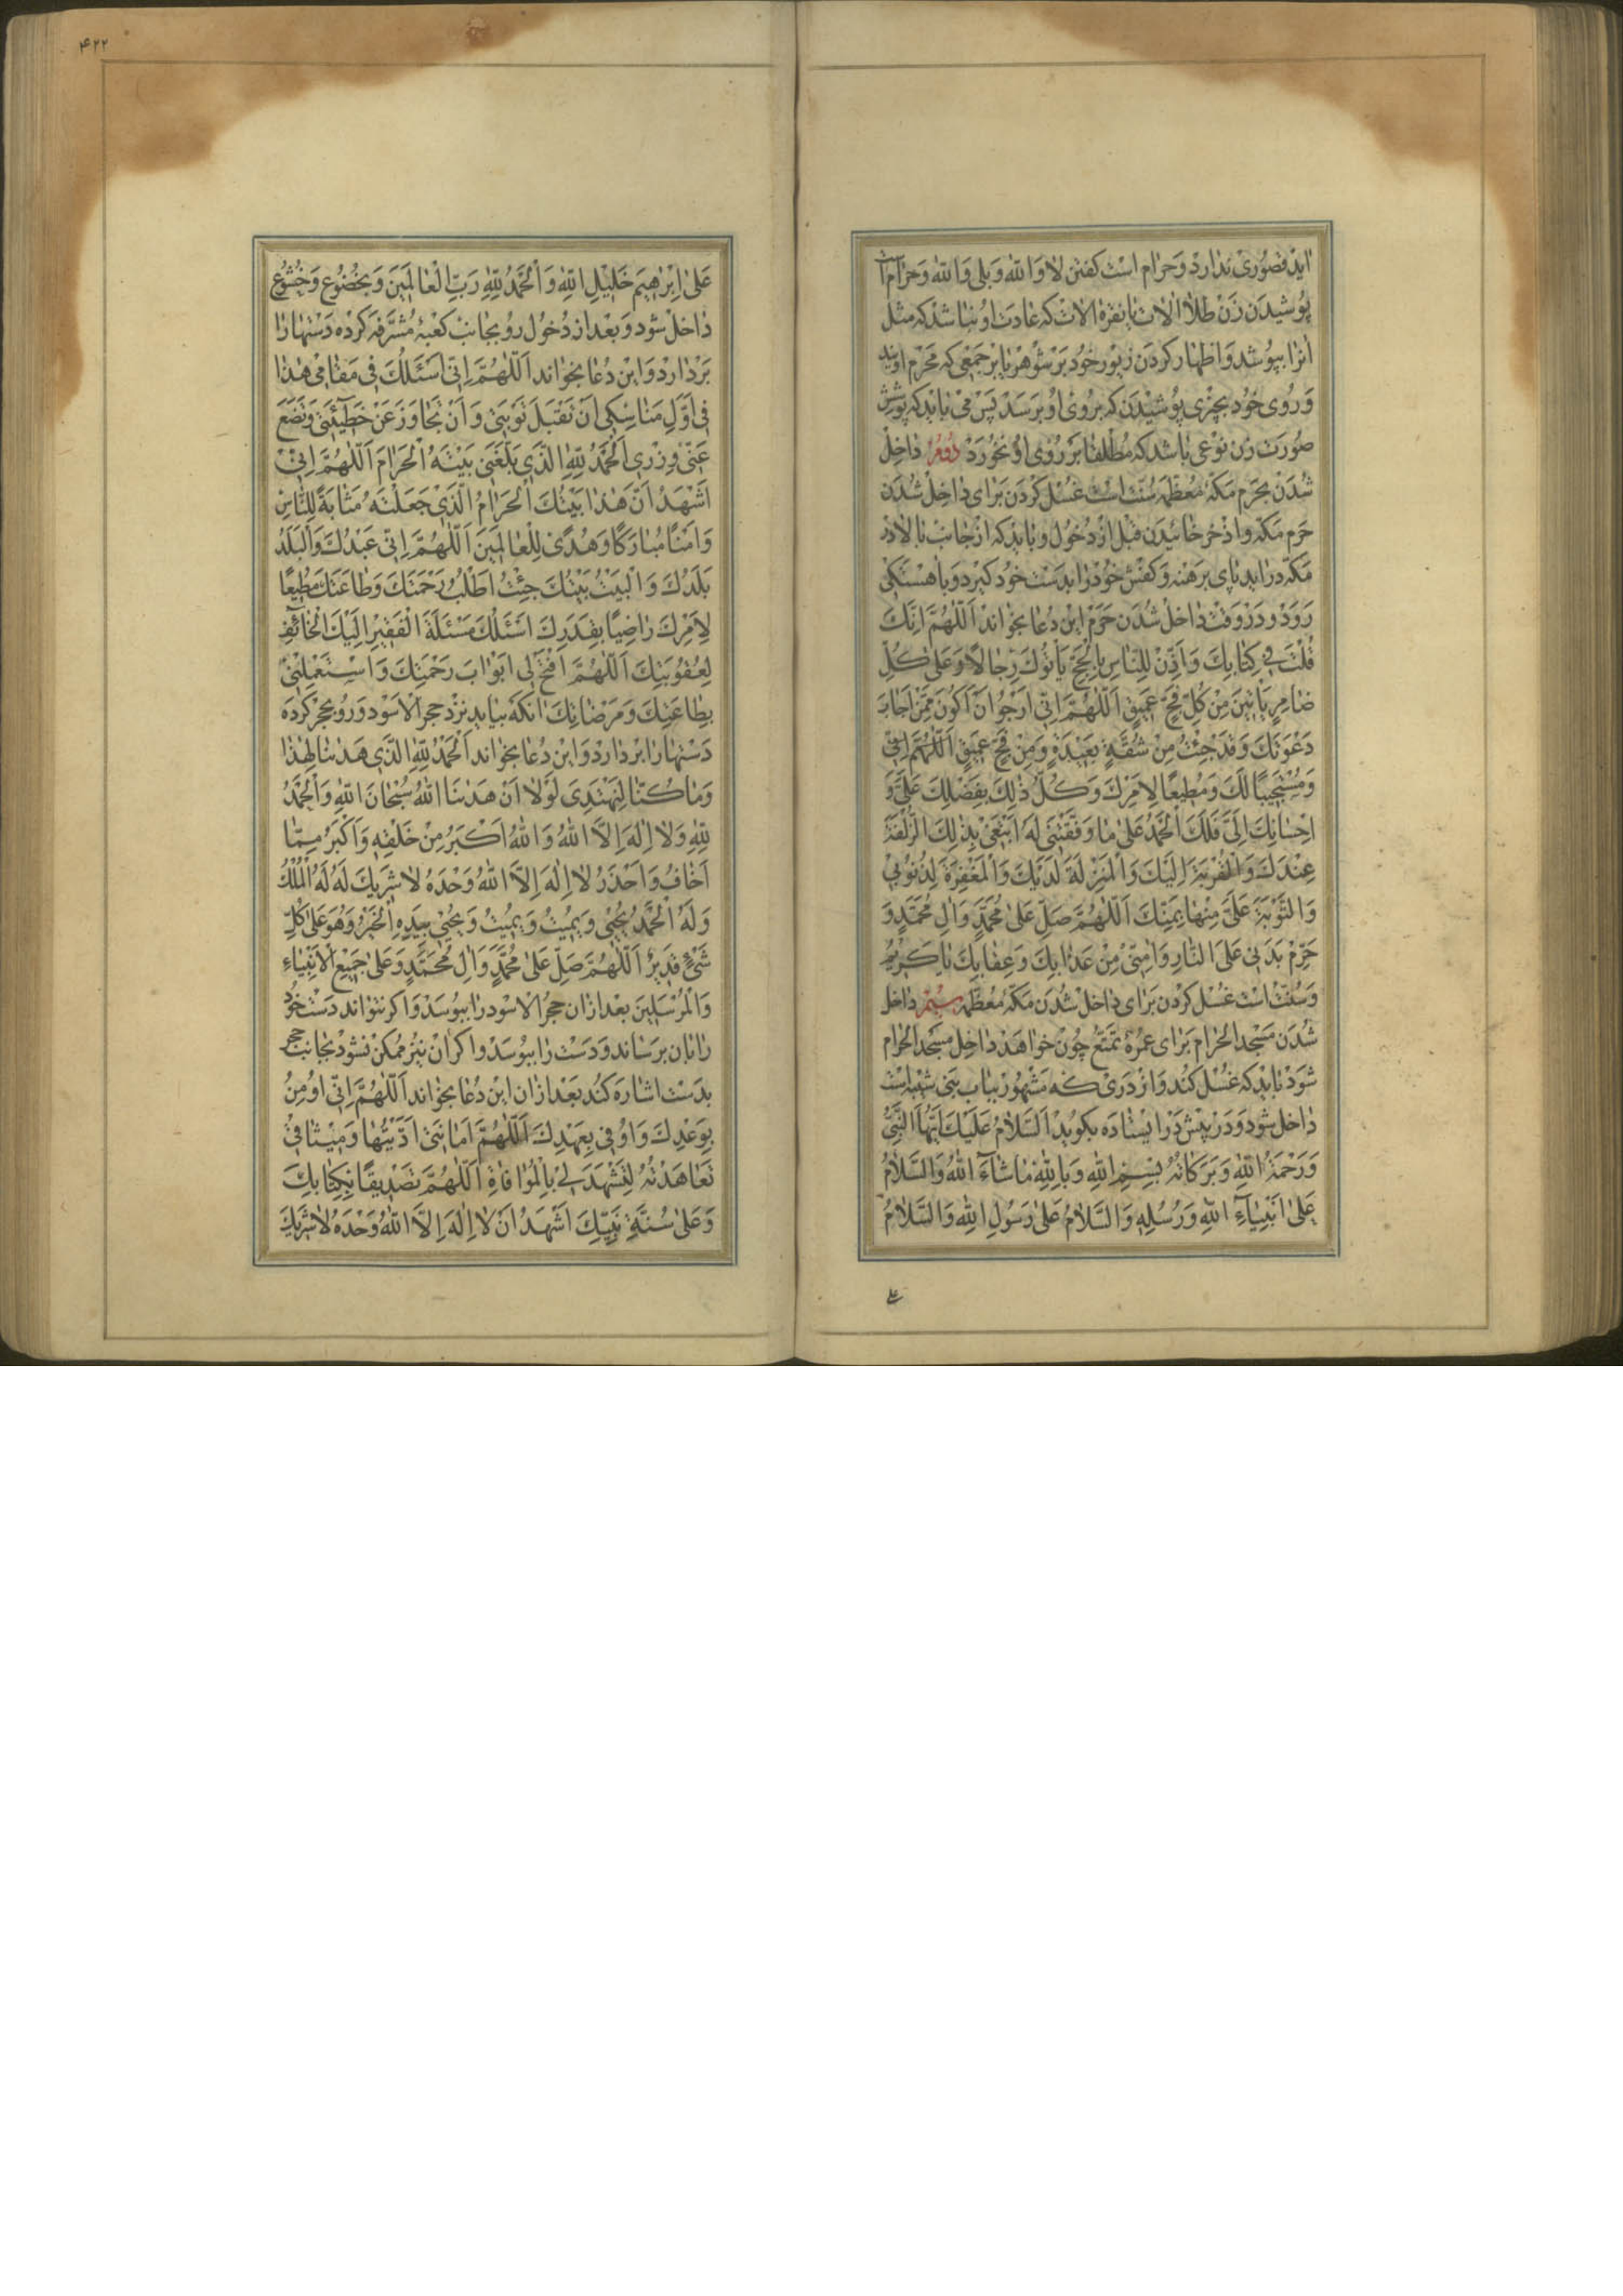 اید قصوری ندارد و حرام است کفتن لا و الله و بلی و الله و حرام است
پوشیدن زن طلا الات یا نقره الات که عادت او نباشد که مثل
انرا بپوشد و اظهار کردن زیور خود بر شوهر یا بر جمعی که محرم اویند
و روی خود بچیزی پوشیدن که بروی او برسد پس می باید که پوشش
صورت زن نوعی باشد که مطلقا بر روی او نخورد دوم داخل
شدن بحرم مکه معظمه سنت است غسل کردن برای داخل شدن
حرم مکه و اذخر خائیدن قبل از دخول و باید که از جانب بالا در
مکه در اید پای برهنه و کفش خود را بدست خود کیرد و باهستکی
رود و در وقت داخل شدن حرم این دعا بخواند اَللّٰهُمَّ اِنَّكَ
قُلْتَ فِي كِتَابِكَ وَاَذِّنْ لِلنَّاسِ بِالْحَجِّ يَأْتُوكَ رِجَالًا وَعَلىٰ كُلِّ
ضَامِرٍ يَأْتِينَ مِنْ كُلِّ فَجٍّ عَمِيقٍ اَللّٰهُمَّ اِنِّي اَرْجُو اَنْ اَكُونَ مِمَّنْ اَجَابَ
دَعْوَتَكَ وَقَدْ جِئْتُ مِنْ شُقَّةٍ بَعِيدَةٍ وَمِنْ فَجٍّ عَمِيقٍ اَللّٰهُمَّ اِنِّي
وَمُسْتَجِيبًا لَكَ وَمُطِيعًا لِاَمْرِكَ وَكُلُّ ذٰلِكَ بِفَضْلِكَ عَلَيَّ وَ
اِحْسَانِكَ اِلَيَّ فَلَكَ الْحَمْدُ عَلىٰ مَا وَفَّقْتَنِي لَهُ اَبْتَغِي بِذٰلِكَ الزُّلْفَةَ
عِنْدَكَ وَالْقُرْبَةَ اِلَيْكَ وَالْمَنْزِلَةَ لَدَيْكَ وَالْمَغْفِرَةَ لِذُنُوبِي
وَالتَّوْبَةَ عَلَيَّ مِنْهَا بِمَنِّكَ اَللّٰهُمَّ صَلِّ عَلىٰ مُحَمَّدٍ وَاٰلِ مُحَمَّدٍ وَ
حَرِّمْ بَدَنِي عَلَى النَّارِ وَاٰمِنِّي مِنْ عَذَابِكَ وَعِقَابِكَ يَا كَرِيمُ
و سنت است غسل کردن برای داخل شدن مکه معظمه سیم داخل
شدن مسجد الحرام برای عمرۀ تمتع چون خواهد داخل مسجد الحرام
شود باید که غسل کند و از دری که مشهور بباب بنی شیبه است
داخل شود و در پیش در ایستاده بکوید اَلسَّلَامُ عَلَيْكَ اَيُّهَا النَّبِيُّ
وَرَحْمَةُ اللّٰهِ وَبَرَكَاتُهُ بِسْمِ اللّٰهِ وَبِاللّٰهِ مَا شَاۤءَ اللّٰهُ وَالسَّلَامُ
عَلىٰ اَنْبِيَاۤءِ اللّٰهِ وَرُسُلِهِ وَالسَّلَامُ عَلىٰ رَسُولِ اللّٰهِ وَالسَّلَامُ
علی
۴۲۲
عَلىٰ اِبْرٰهِيمَ خَلِيلِ اللّٰهِ وَالْحَمْدُ لِلّٰهِ رَبِّ الْعَالَمِينَ و بخضوع و خشوع
داخل شود و بعد از دخول رو بجانب کعبۀ مشرفه کرده دستها را
بردارد و این دعا بخواند اَللّٰهُمَّ اِنِّي اَسْئَلُكَ فِي مَقَامِي هٰذَا
فِي اَوَّلِ مَنَاسِكِي اَنْ تَقْبَلَ تَوْبَتِي وَاَنْ تَجَاوَزَ عَنْ خَطِيۤئَتِي وَتَضَعَ
عَنِّي وِزْرِي اَلْحَمْدُ لِلّٰهِ الَّذِي بَلَّغَنِي بَيْتَهُ الْحَرَامَ اَللّٰهُمَّ اِنِّي
اَشْهَدُ اَنَّ هٰذَا بَيْتُكَ الْحَرَامُ الَّذِي جَعَلْتَهُ مَثَابَةً لِلنَّاسِ
وَاَمْنًا مُبَارَكًا وَهُدًى لِلْعَالَمِينَ اَللّٰهُمَّ اِنِّي عَبْدُكَ وَالْبَلَدُ
بَلَدُكَ وَالْبَيْتُ بَيْتُكَ جِئْتُ اَطْلُبُ رَحْمَتَكَ وَطَاعَتَكَ مُطِيعًا
لِاَمْرِكَ رَاضِيًا بِقَدَرِكَ اَسْئَلُكَ مَسْئَلَةَ الْفَقِيرِ اِلَيْكَ الْخَاۤئِفِ
لِعُقُوبَتِكَ اَللّٰهُمَّ افْتَحْ لِي اَبْوَابَ رَحْمَتِكَ وَاسْتَعْمِلْنِي
بِطَاعَتِكَ وَمَرْضَاتِكَ انکه بیاید نزد حجر الاسود و رو بحجر کرده
دستها را بردارد و این دعا بخواند اَلْحَمْدُ لِلّٰهِ الَّذِي هَدٰىنَا لِهٰذَا
وَمَا كُنَّا لِنَهْتَدِيَ لَوْلَا اَنْ هَدٰىنَا اللّٰهُ سُبْحَانَ اللّٰهِ وَالْحَمْدُ
لِلّٰهِ وَلَا اِلٰهَ اِلَّا اللّٰهُ وَاللّٰهُ اَكْبَرُ مِنْ خَلْقِهِ وَاَكْبَرُ مِمَّا
اَخَافُ وَاَحْذَرُ لَا اِلٰهَ اِلَّا اللّٰهُ وَحْدَهُ لَا شَرِيكَ لَهُ لَهُ الْمُلْكُ
وَلَهُ الْحَمْدُ يُحْيِي وَيُمِيتُ وَيُمِيتُ وَيُحْيِي بِيَدِهِ الْخَيْرُ وَهُوَ عَلىٰ كُلِّ
شَيْءٍ قَدِيرٌ اَللّٰهُمَّ صَلِّ عَلىٰ مُحَمَّدٍ وَاٰلِ مُحَمَّدٍ وَعَلىٰ جَمِيعِ الْاَنْبِيَاءِ
وَالْمُرْسَلِينَ بعد ازان حجر الاسود را ببوسد و اکر نتواند دست خود
را بان برساند و دست را ببوسد و اکر ان نیز ممکن نشود بجانب حجر
بدست اشاره کند بعد ازان این دعا بخواند اَللّٰهُمَّ اِنِّي اُومِنُ
بِوَعْدِكَ وَاُوفِي بِعَهْدِكَ اَللّٰهُمَّ اَمَانَتِي اَدَّيْتُهَا وَمِيثَاقِي
تَعَاهَدْتُهُ لِتَشْهَدَ لِي بِالْمُوَافَاةِ اَللّٰهُمَّ تَصْدِيقًا بِكِتَابِكَ
وَعَلىٰ سُنَّةِ نَبِيِّكَ اَشْهَدُ اَنْ لَا اِلٰهَ اِلَّا اللّٰهُ وَحْدَهُ لَا شَرِيكَ